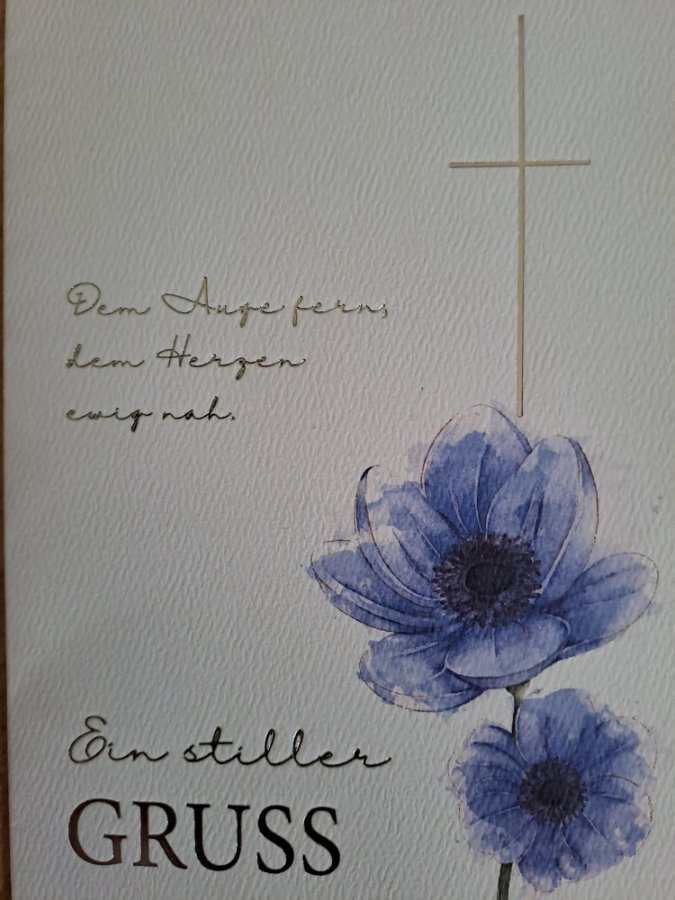 Dem Auge fern,
dem Herzen
ewig nah.
Ein stiller
GRUSS